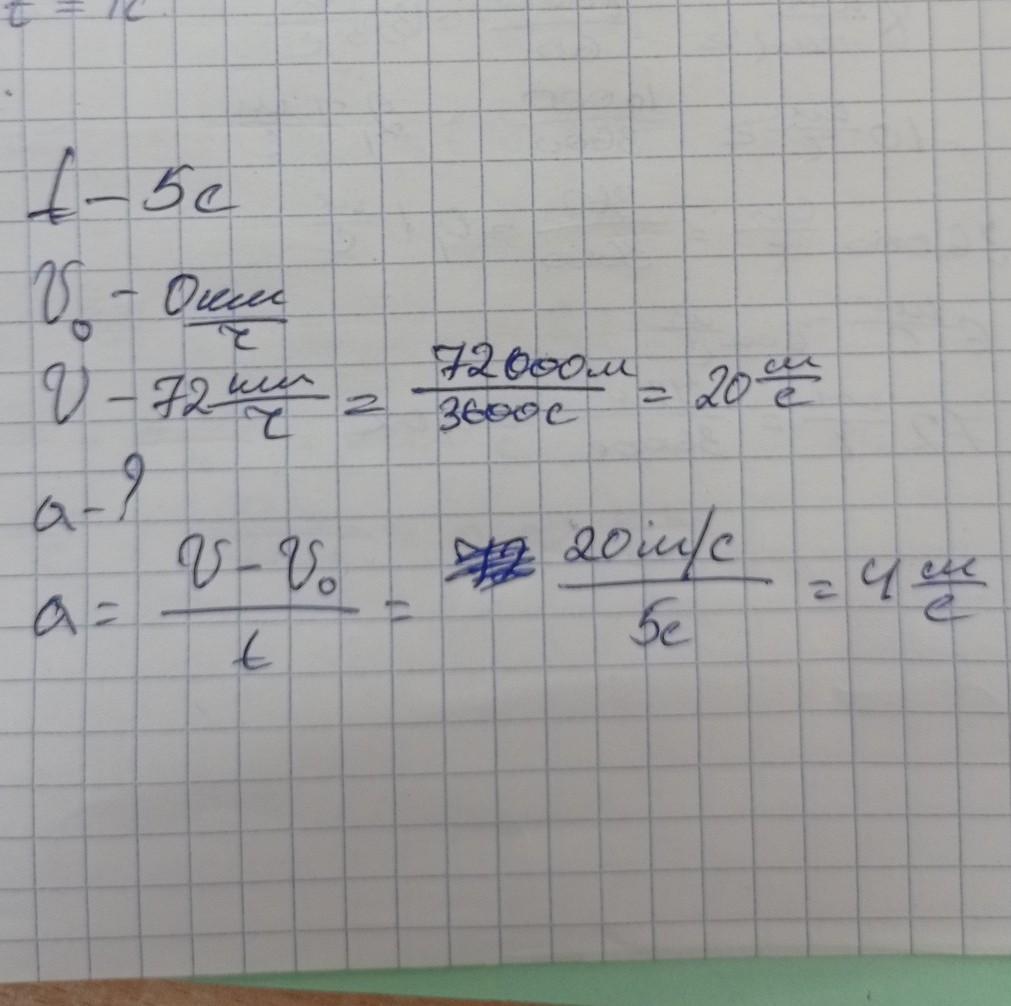 t – 5с
V₀ – 0 км/ч
V – 72 км/ч = 72000м/3600с = 20 м/с
a – ?
a = (V – V₀)/t = (20 м/с)/5с = 4 м/с